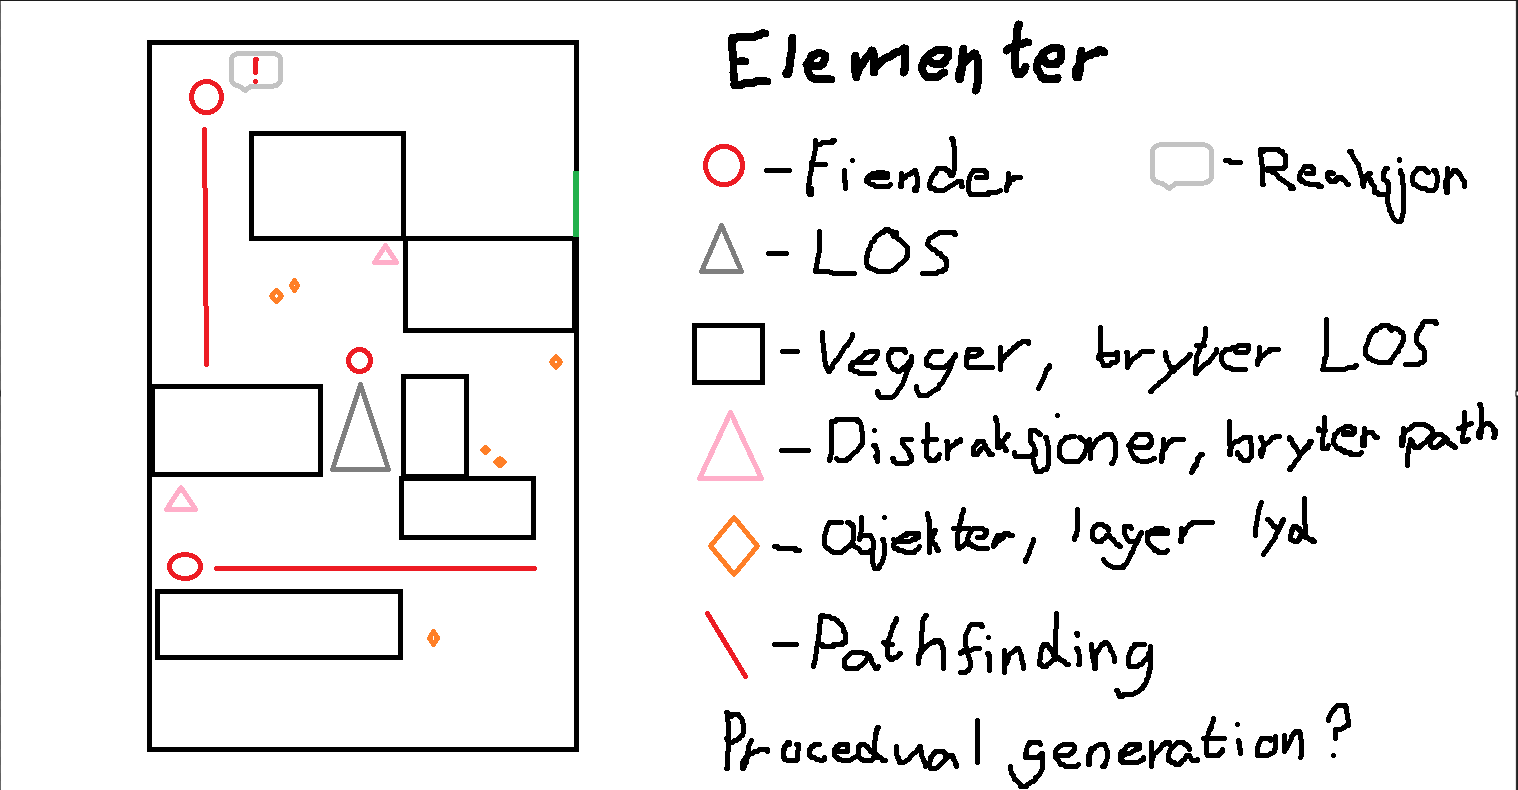 !
Elementer
- Fiender
- Reaksjon
- LOS
- Vegger, bryter LOS
- Distraksjoner, bryter path
- Objekter, lager lyd
- Pathfinding
Procedual generation?